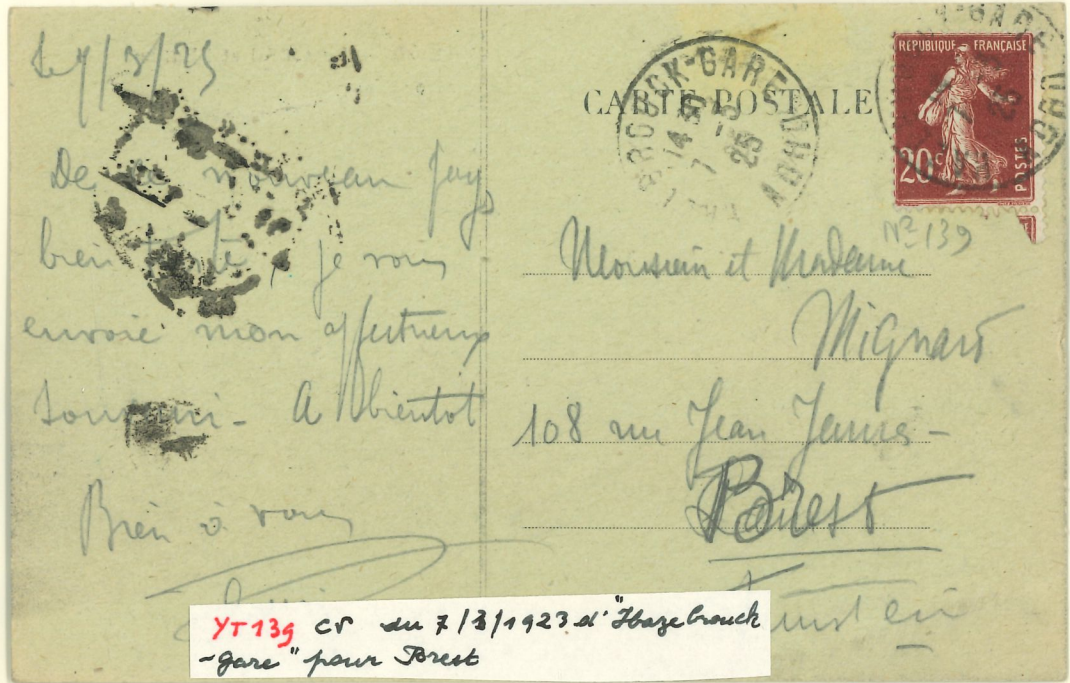 Le 7/3/25
De ce nouveau pays
bien je vous
envoie mon affectueux
souvenir - A bientot
Bien à vous
CARTE POSTALE
BROUCK-GARE
14 30
7 - 3
25
NORD
RÉPUBLIQUE FRANÇAISE
20c
POSTES
-GARE
NORD
No 139
Monsieur et Madame
Mignard
108 rue Jean Jaurès -
Brest
YT 139 CP du 7/3/1923 d'"Hazebrouck
-gare" pour Brest